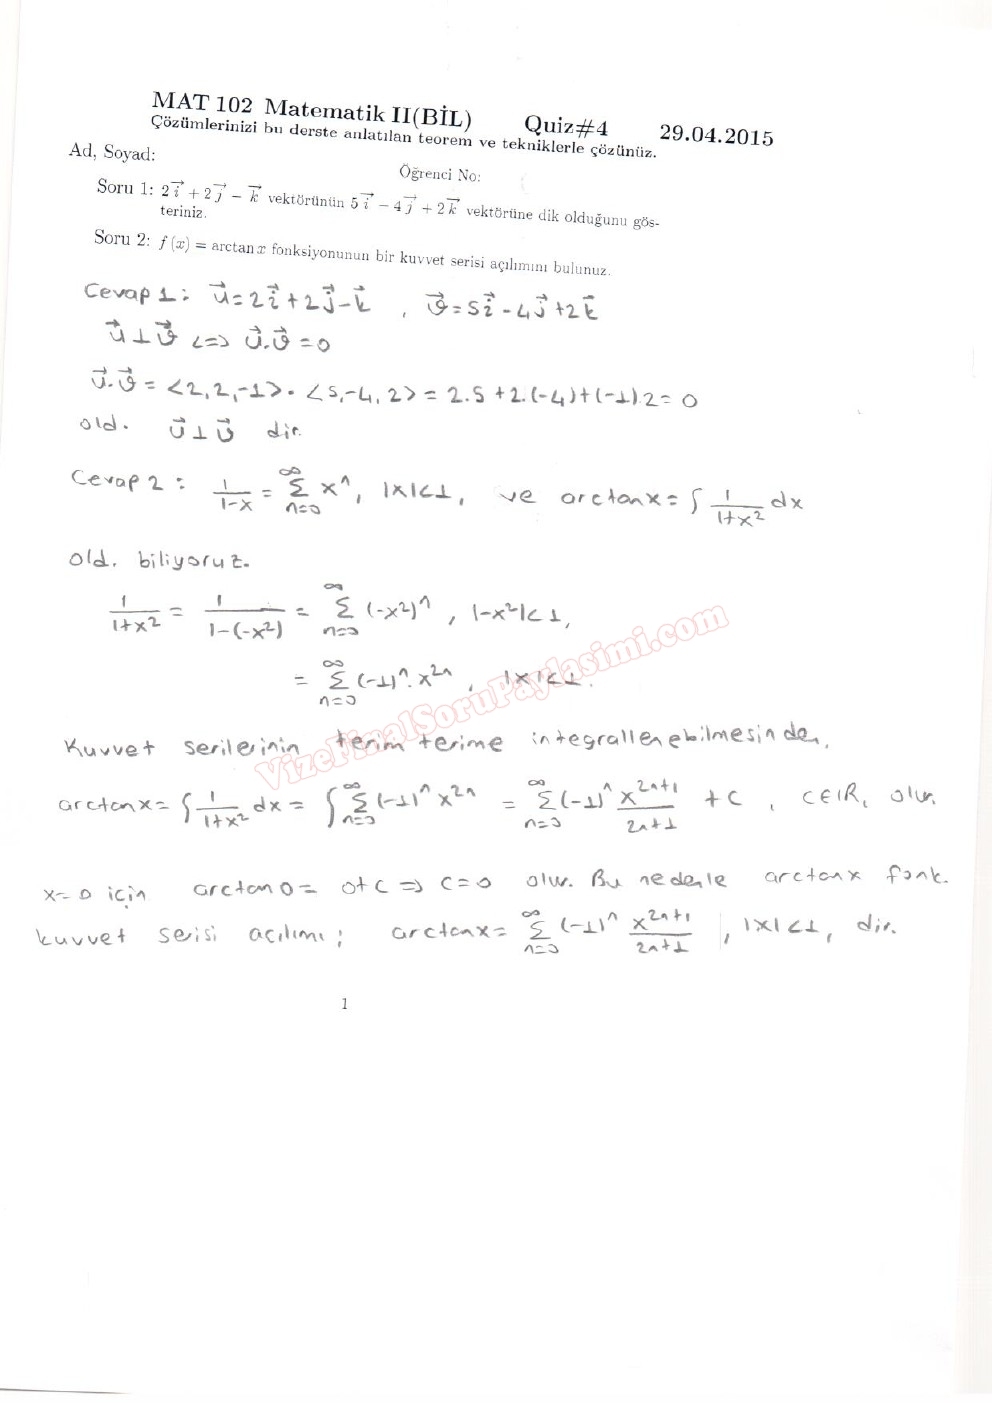 MAT 102 Matematik II(BİL) Quiz#4 29.04.2015
Çözümlerinizi bu derste anlatılan teorem ve tekniklerle çözünüz.
Ad, Soyad: Öğrenci No:
Soru 1: 2i⃗ + 2j⃗ − k⃗ vektörünün 5i⃗ − 4j⃗ + 2k⃗ vektörüne dik olduğunu gös-
teriniz.
Soru 2: f(x) = arctan x fonksiyonunun bir kuvvet serisi açılımını bulunuz.
Cevap 1: u⃗=2i⃗+2j⃗-k⃗ , v⃗=5i⃗-4j⃗+2k⃗
u⃗⊥v⃗ <=> u⃗.v⃗=0
u⃗.v⃗ = <2,2,-1>.<5,-4,2> = 2.5+2.(-4)+(-1).2=0
old. u⃗⊥v⃗ dir.
Cevap 2: 1/(1-x) = ∞Σn=0 x^n, |x|<1, ve arctanx = ∫ 1/(1+x²) dx
old. biliyoruz.
1/(1+x²) = 1/(1-(-x²)) = ∞Σn=0 (-x²)^n , |-x²|<1,
= ∞Σn=0 (-1)^n.x^2n , |x|<1.
VizeFinalSoruPaylasimi.com
Kuvvet serilerinin terim terime integrallenebilmesinden,
arctanx = ∫ 1/(1+x²) dx = ∫ ∞Σn=0 (-1)^n x^2n = ∞Σn=0 (-1)^n x^(2n+1)/(2n+1) + C , C∈IR, olur.
x=0 için arctan0 = 0+C => C=0 olur. Bu nedenle arctanx fonk.
kuvvet serisi açılımı; arctanx = ∞Σn=0 (-1)^n x^(2n+1)/(2n+1) , |x|<1, dir.
1